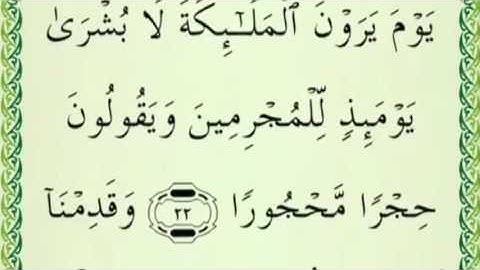 يَوْمَ يَرَوْنَ ٱلْمَلَـٰٓئِكَةَ لَا بُشْرَىٰ
يَوْمَئِذٍ لِّلْمُجْرِمِينَ وَيَقُولُونَ
حِجْرًا مَّحْجُورًا ٢٢ وَقَدِمْنَآ